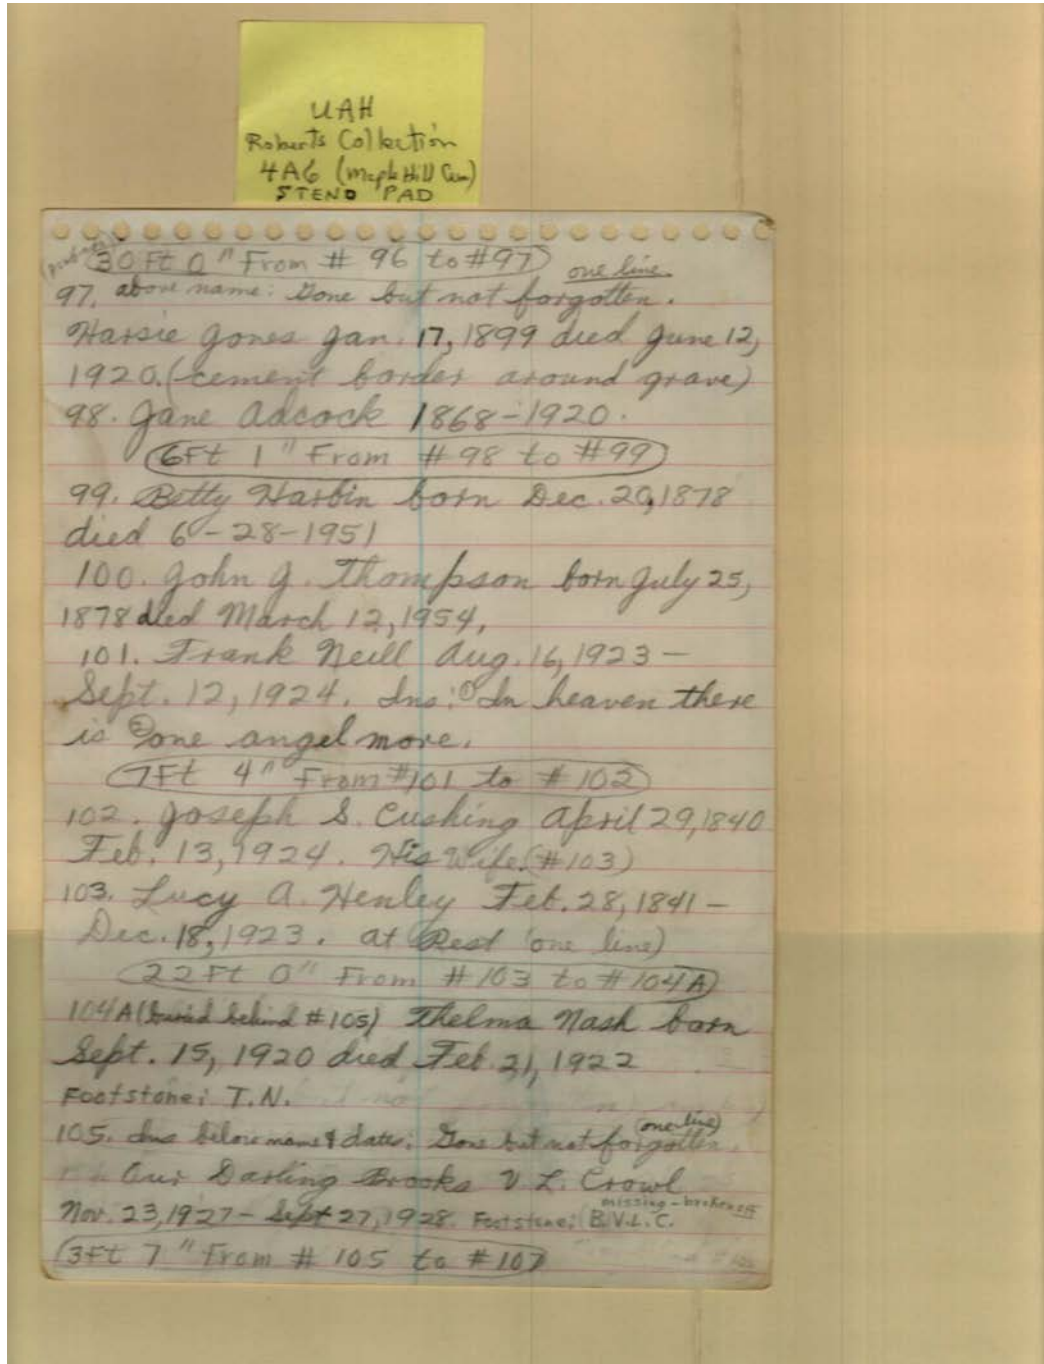 UAH
Roberts Collection
4A6 (Maple Hill Cem)
STENO PAD
30Ft 0" From # 96 to #97
one line.
97. above name: Gone but not forgotten.
Harsie Jones Jan. 17, 1899 died June 12,
1920. (cement border around grave)
98. Jane Adcock 1868-1920.
6Ft 1" From #98 to #99
99. Betty Harbin born Dec. 20, 1878
died 6-28-1951
100. John J. Thompson born July 25,
1878 died March 12, 1954.
101. Frank Neill Aug. 16, 1923 —
Sept. 12, 1924. Ins: ① In heaven there
is ② one angel more.
7Ft 4" From #101 to #102
102. Joseph S. Cushing April 29, 1840
Feb. 13, 1924. His Wife. (#103)
103. Lucy A. Henley Feb. 28, 1841 —
Dec. 18, 1923. at Rest (one line)
22Ft 0" From #103 to #104A
104A (buried behind #105) Thelma Nash born
Sept. 15, 1920 died Feb. 21, 1922
Footstone: T.N.
(one line)
105. Ins below name & dates: Gone but not forgotten.
Our Darling Brooks V. L. Crowl
missing - broken off
Nov. 23, 1927 - Sept 27, 1928. Footstone: B.V.L.C.
3Ft 7" From # 105 to #107